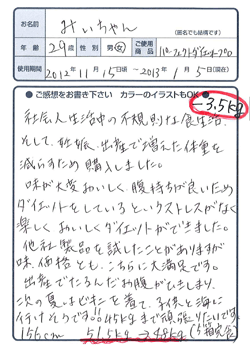 お名前
みいちゃん
(匿名でも結構です)
年齢 29歳 性別 男・女 ご使用商品 パーフェクトダイエットプロ
使用期間 2012年11月15日頃 〜2013年1月5日(現在)
●ご感想をお書き下さい カラーのイラストもOK♪
−3.5kg
社会人生活中の不規則な食生活、
そして、妊娠、出産で増えた体重を
減らすため購入しました。
味が大変おいしく腹持ちが良いため
ダイエットをしているというストレスがなく
楽しくおいしくダイエットができました。
他社製品を試したことがありますが
味、価格とも、こちらに大満足です。
出産でたるんだお腹がひきしまり、
次の夏はビキニを着て、子供と海に
行けそうです!!45kgまで頑張りたいです。
155cm 51.5kg→48kg